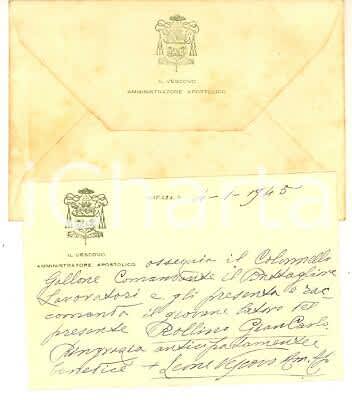 IL VESCOVO
AMMINISTRATORE APOSTOLICO
iCharta
4-1-1945
IL VESCOVO
AMMINISTRATORE APOSTOLICO
ossequia il Colonnello
Gallone Comandante il Battaglione
Lavoratori e gli presenta e rac-
comanda il giovane latore del
presente Bollino GianCarlo
Ringrazia anticipatamente
benedice + Leone Vescovo Am. Ap.